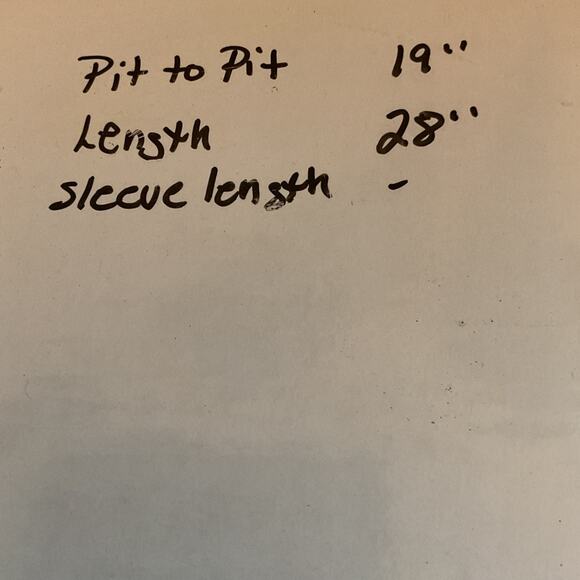 Pit to Pit 19"
Length 28"
sleeve length -